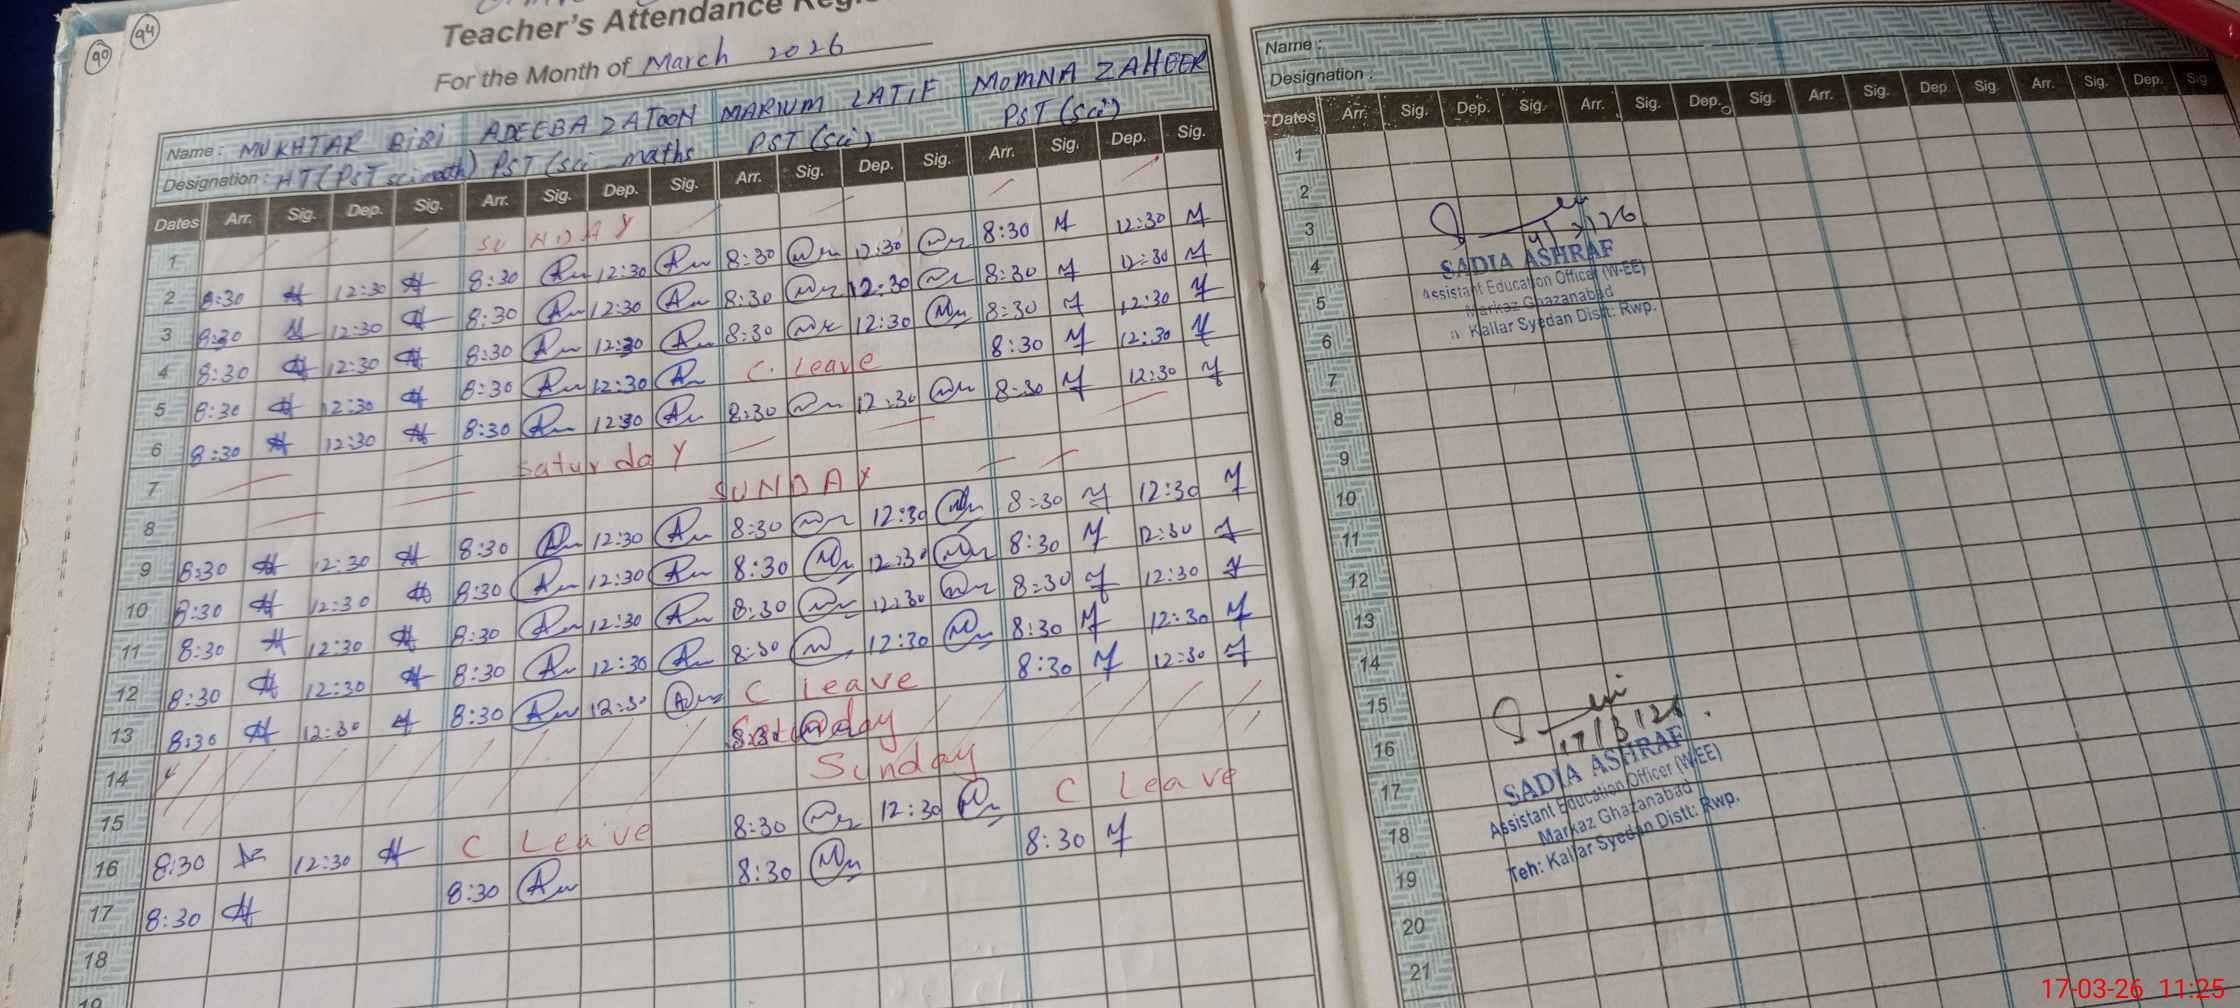 94
90
Teacher's Attendance
For the Month of March 2026
Name: MUKHTAR BIBI ADEEBA ZATOON MARIUM LATIF MOMNA ZAHEER
Designation: HT (PST sci math) PST (sci maths PST (sci) PST (sci)
Dates Arr. Sig. Dep. Sig. Arr. Sig. Dep. Sig. Arr. Sig. Dep. Sig. Arr. Sig. Dep. Sig.
1 SUNDAY
2 8:30 12:30 8:30 12:30 8:30 12:30 8:30 12:30
3 8:30 12:30 8:30 12:30 8:30 12:30 8:30 12:30
4 8:30 12:30 8:30 12:30 8:30 12:30 8:30 12:30
5 8:30 12:30 8:30 12:30 C. Leave 8:30 12:30
6 8:30 12:30 8:30 12:30 8:30 12:30 8:30 12:30
7 Saturday
8 SUNDAY
9 8:30 12:30 8:30 12:30 8:30 12:30 8:30 12:30
10 8:30 12:30 8:30 12:30 8:30 12:30 8:30 12:30
11 8:30 12:30 8:30 12:30 8:30 12:30 8:30 12:30
12 8:30 12:30 8:30 12:30 8:30 12:30 8:30 12:30
13 8:30 12:30 8:30 12:30 C Leave 8:30 12:30
14 Saturday
15 Sunday
16 8:30 12:30 C Leave 8:30 12:30 C Leave
17 8:30 8:30 8:30 8:30
18
19
Name:
Designation:
Dates Arr. Sig. Dep. Sig. Arr. Sig. Dep. Sig. Arr. Sig. Dep Sig. Arr. Sig. Dep. Sig
1
2
3
4
5
6
7
8
9
10
11
12
13
14
15
16
17
18
19
20
21
SADIA ASHRAF
Assistant Education Officer (W-EE)
Markaz Ghazanabad
Kallar Syedan Distt: Rwp.
17/3/26
SADIA ASHRAF
Assistant Education Officer (W-EE)
Markaz Ghazanabad
Teh: Kallar Syedan Distt: Rwp.
17-03-26 11:25